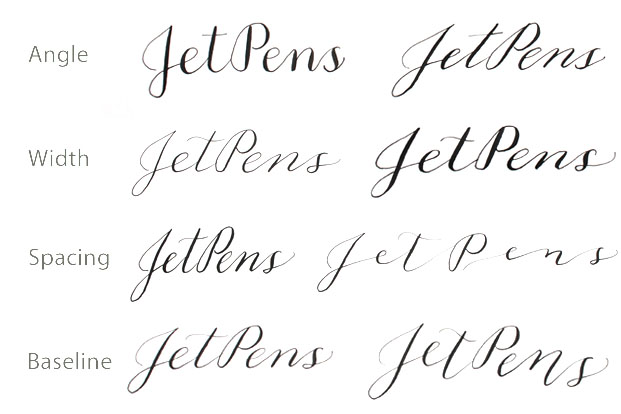 Angle JetPens JetPens
Width JetPens JetPens
Spacing JetPens JetPens
Baseline JetPens JetPens